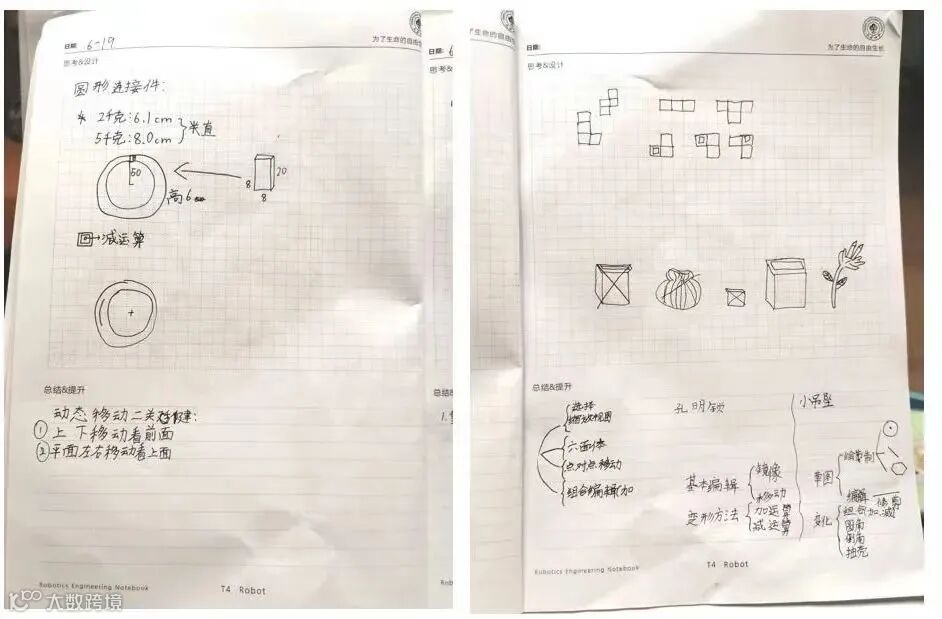 日期: 6-19
为了生命的自由生长
思考&设计
圆形连接件:
* 2千克:6.1cm
5千克:8.0cm
半直
50
8
20
8
高6cm
回→减运算
总结&提升
动态移动二关键:
① 上下移动看前面
② 平面左右移动看上面
Robotics Engineering Notebook
T4 Robot
日期:
为了生命的自由生长
思考&设计
总结&提升
选择
缩放视图
六面体
点对点移动
组合编辑(加
孔明锁
基本编辑
镜像
移动
变形方法
加运算
减运算
小吊坠
草图
绘制
编辑
修剪
变化
组合加.减
圆角
倒角
抽壳
Robotics Engineering Notebook
T4 Robot
大数跨境